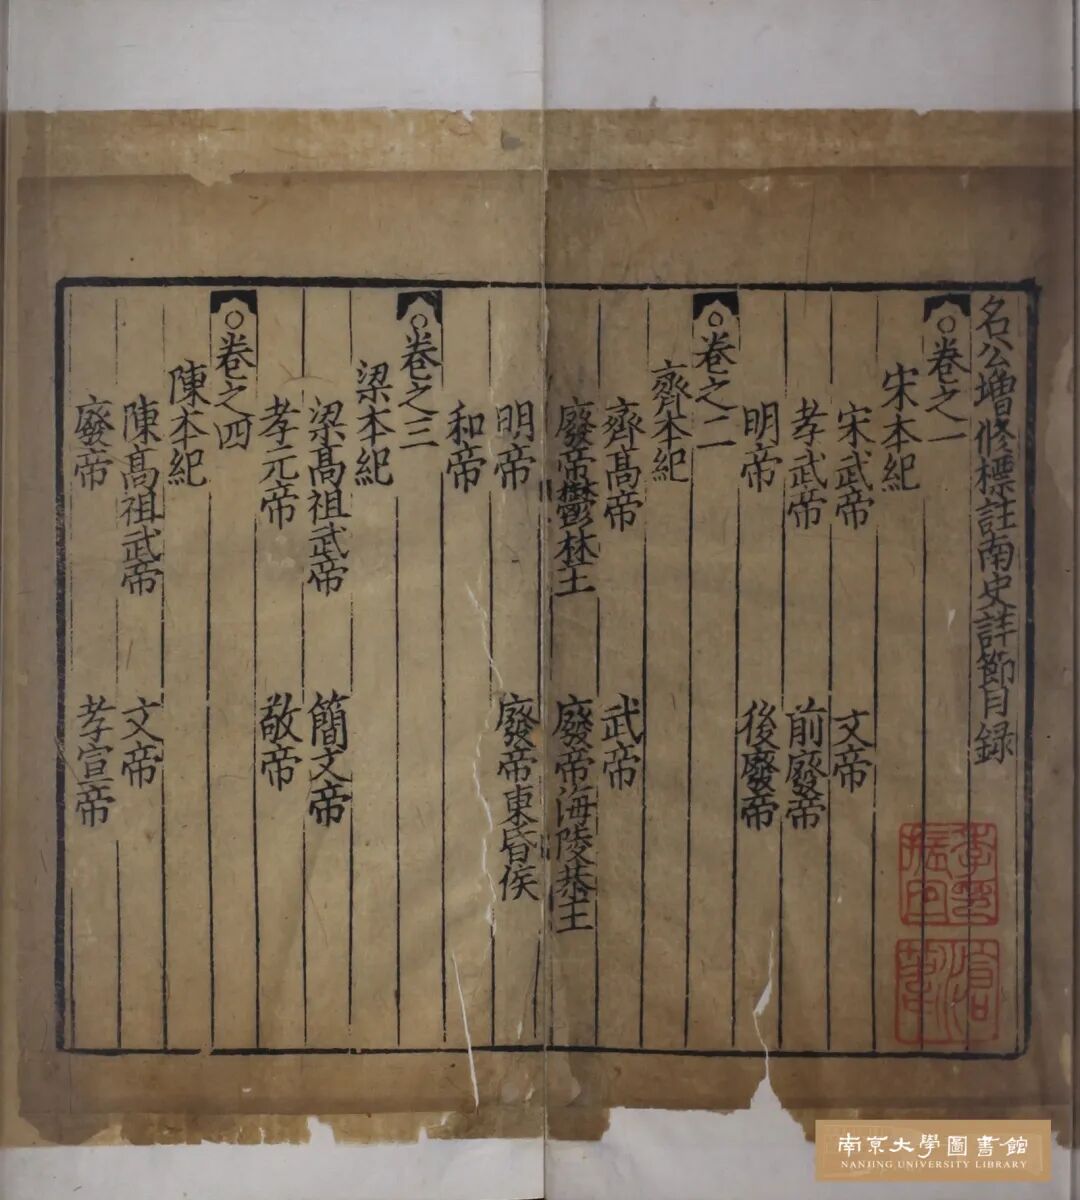 名公增修標註南史詳節目録
○卷之一
宋本紀
宋武帝 文帝
孝武帝 前廢帝
明帝 後廢帝
○卷之二
齊本紀
齊髙帝 武帝
廢帝鬱林王 廢帝海陵恭王
明帝 廢帝東昏侯
和帝
○卷之三
梁本紀
梁髙祖武帝 簡文帝
孝元帝 敬帝
○卷之四
陳本紀
陳髙祖武帝 文帝
廢帝 孝宣帝
季印振宜
滄葦
南京大學圖書館
NANJING UNIVERSITY LIBRARY